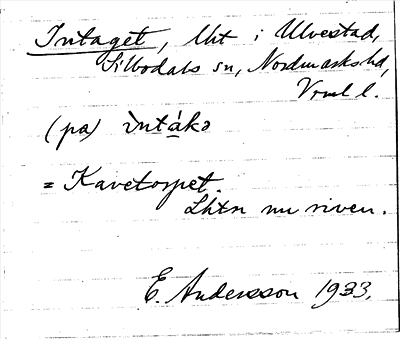 Intaget, lht i Ulvestad,
Sillbodals sn, Nordmarks hd,
Vrml l.
(pa) ìntákə
= Kavetorpet.
Lhtn nu riven.
E. Andersson 1933.